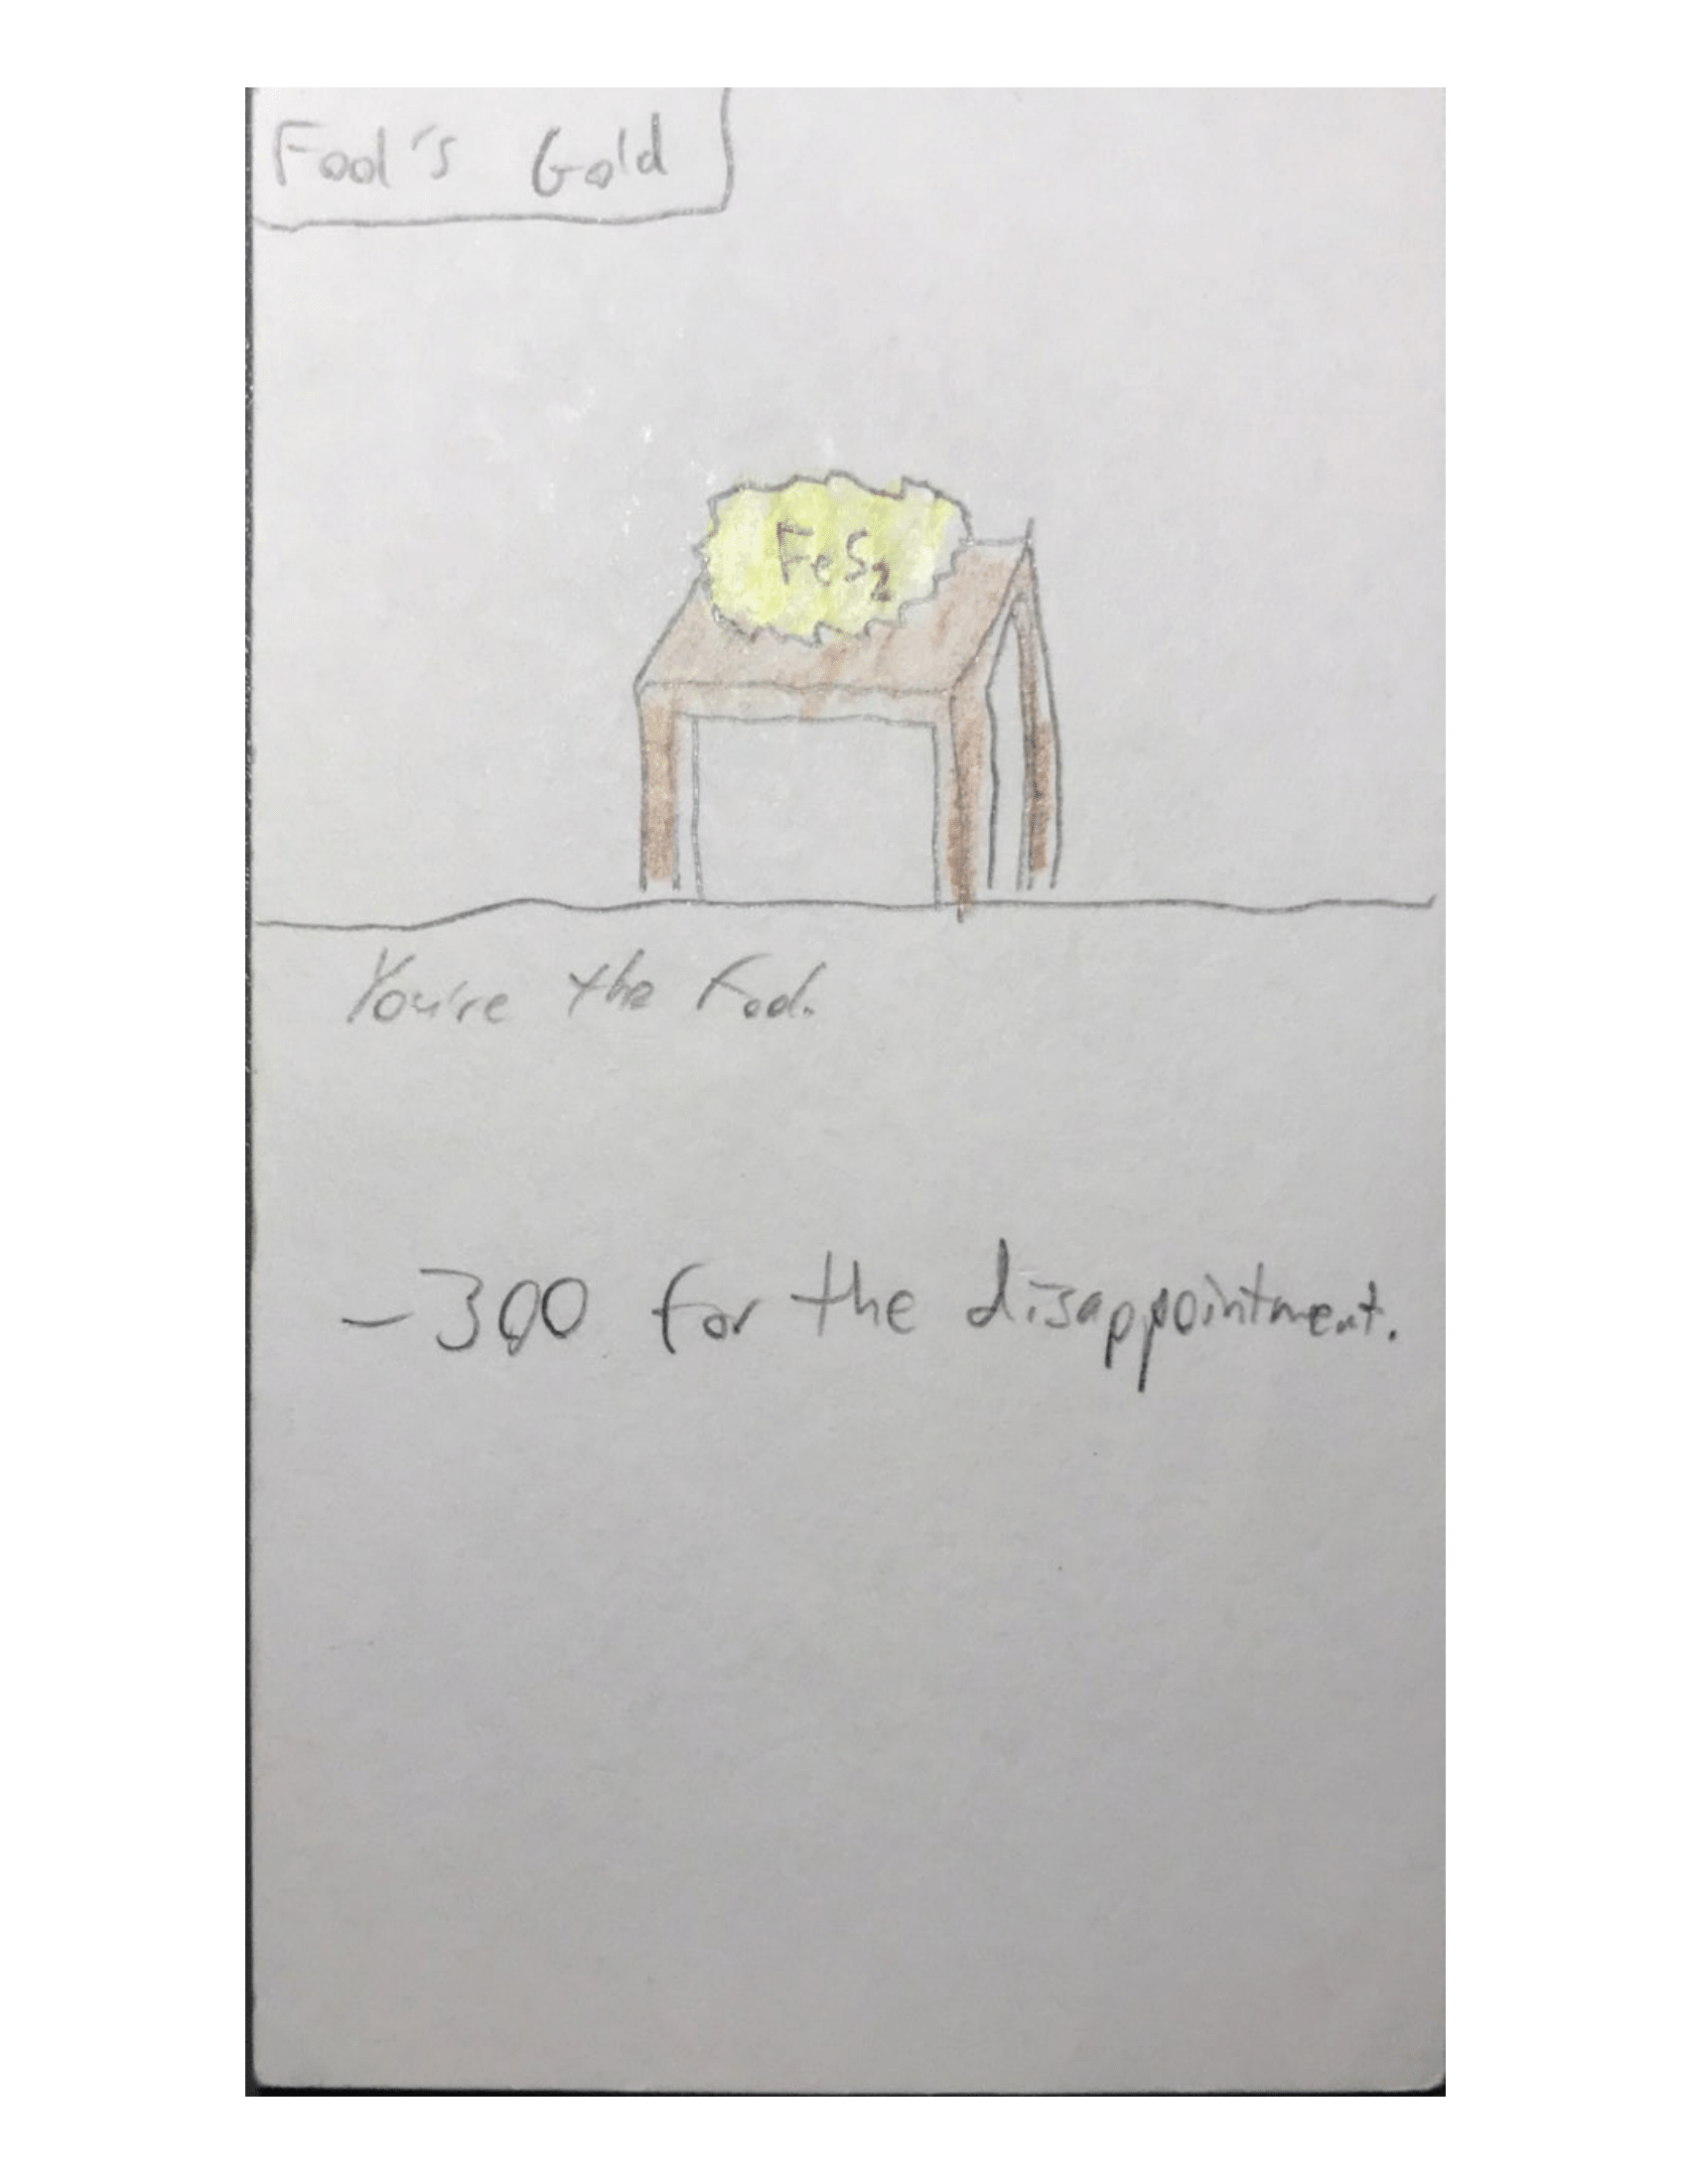 Fool's Gold
FeS₂
You're the Fool.
-300 for the disappointment.